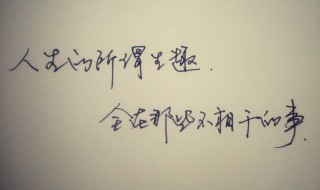 人生的所谓生趣.
全在那些不相干的事.